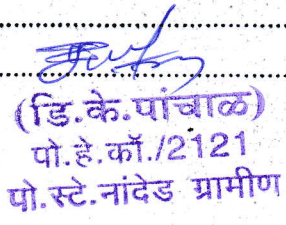 (डि.के.पांचाळ)
पो.हे.कॉ./2121
पो.स्टे.नांदेड ग्रामीण